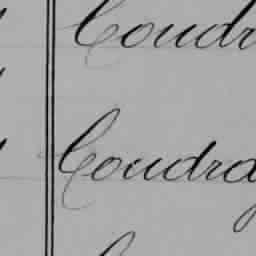 Coudr
Coudra